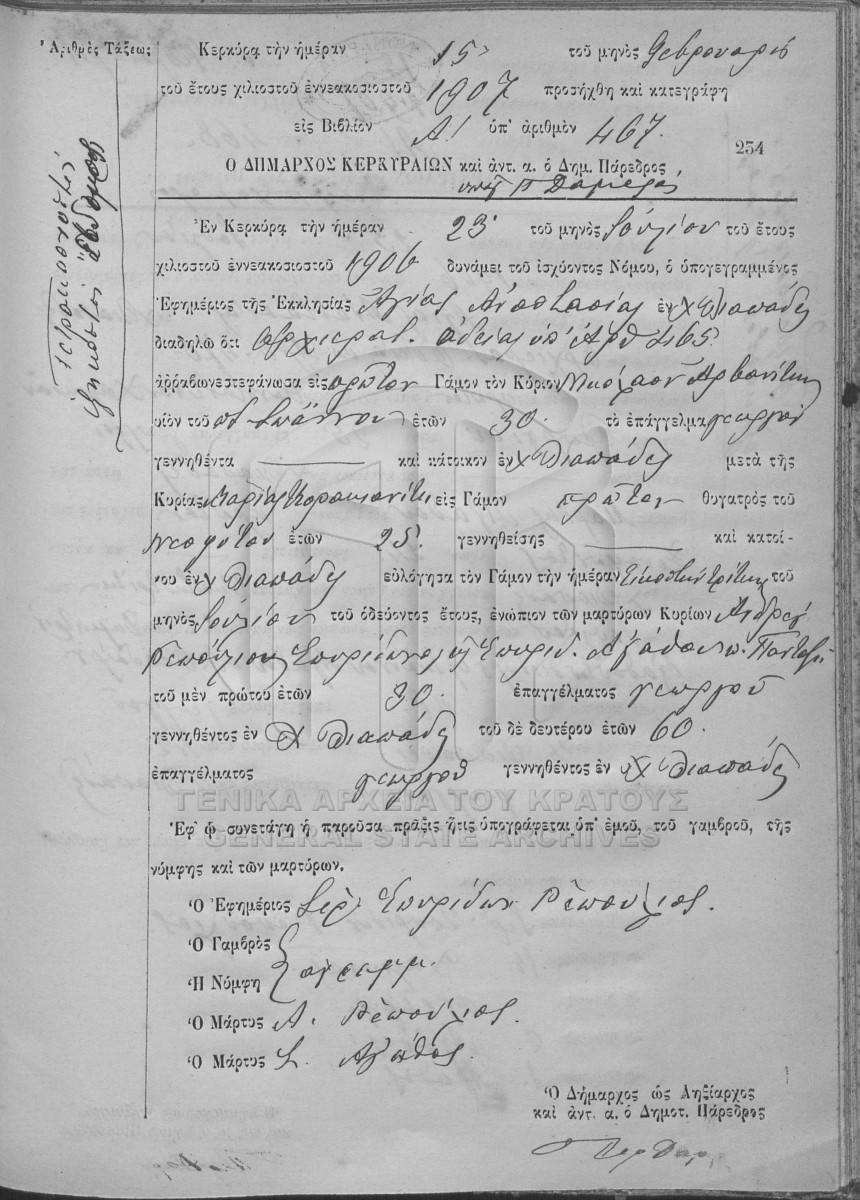 Ἀριθμὸς Τάξεως
τετρακοσιοστὸς
ἑξηκοστὸς ἕβδομος
Κερκύρα τὴν ἡμέραν 15 τοῦ μηνὸς Φεβρουαρίου
τοῦ ἔτους χιλιοστοῦ ἐννεακοσιοστοῦ 1907 προσήχθη καὶ κατεγράφη
εἰς Βιβλίον Α! ὑπ' ἀριθμὸν 467.
234
Ο ΔΗΜΑΡΧΟΣ ΚΕΡΚΥΡΑΙΩΝ καὶ ἀντ. α. ὁ Δημ. Πάρεδρος
Ἐν Κερκύρᾳ τὴν ἡμέραν 23 τοῦ μηνὸς Ἰουλίου τοῦ ἔτους
χιλιοστοῦ ἐννεακοσιοστοῦ 1906 δυνάμει τοῦ ἰσχύοντος Νόμου, ὁ ὑπογεγραμμένος
Ἐφημέριος τῆς Ἐκκλησίας Ἁγίας Ἀναστασίας ἐν Χ Λιαπάδες
διαδηλῶ ὅτι ἀρχιερατ. ἀδείας ὑπ' Ἀρθ 465
ἀῤῥαβωνεστεφάνωσα εἰς πρῶτον Γάμον τὸν Κύριον Νικόλαον Ἀρβανίτην
υἱὸν τοῦ Ἰωάννου ἐτῶν 30 τὸ ἐπάγγελμα γεωργὸν
γεννηθέντα καὶ κάτοικον ἐν Χ Λιαπάδες μετὰ τῆς
Κυρίας Μαρίας Κορακιανίτη εἰς Γάμον πρῶτον θυγατρὸς τοῦ
Νεοφύτου ἐτῶν 25. γεννηθείσης καὶ κατοί-
κου ἐν Χ Λιαπάδες εὐλόγησα τὸν Γάμον τὴν ἡμέραν Εἰκοστὴν τρίτην τοῦ
μηνὸς Ἰουλίου τοῦ ὁδεύοντος ἔτους, ἐνώπιον τῶν μαρτύρων Κυρίων Ἀνδρέα
Ρεπούλιου Σπυρίδωνος Σπυρίδ. Ἀγάθου
τοῦ μὲν πρώτου ἐτῶν 30. ἐπαγγέλματος γεωργοῦ
γεννηθέντος ἐν Χ Λιαπάδες τοῦ δὲ δευτέρου ἐτῶν 60.
ἐπαγγέλματος γεωργοῦ γεννηθέντος ἐν Χ Λιαπάδες
ΓΕΝΙΚΑ ΑΡΧΕΙΑ ΤΟΥ ΚΡΑΤΟΥΣ
Ἐφ' ᾧ συνετάγη ἡ παροῦσα πρᾶξις ἥτις ὑπογράφεται ὑπ' ἐμοῦ, τοῦ γαμβροῦ, τῆς
GENERAL STATE ARCHIVES
νύμφης καὶ τῶν μαρτύρων.
Ὁ Ἐφημέριος Ἱερ. Σπυρίδων Ρεπούλιος.
Ὁ Γαμβρὸς
Ἡ Νύμφη ἀγράμμ.
Ὁ Μάρτυς Α. Ρεπούλιος.
Ὁ Μάρτυς Σ. Ἀγάθος.
Ὁ Δήμαρχος ὡς Ληξίαρχος
καὶ ἀντ. α. ὁ Δημοτ. Πάρεδρος